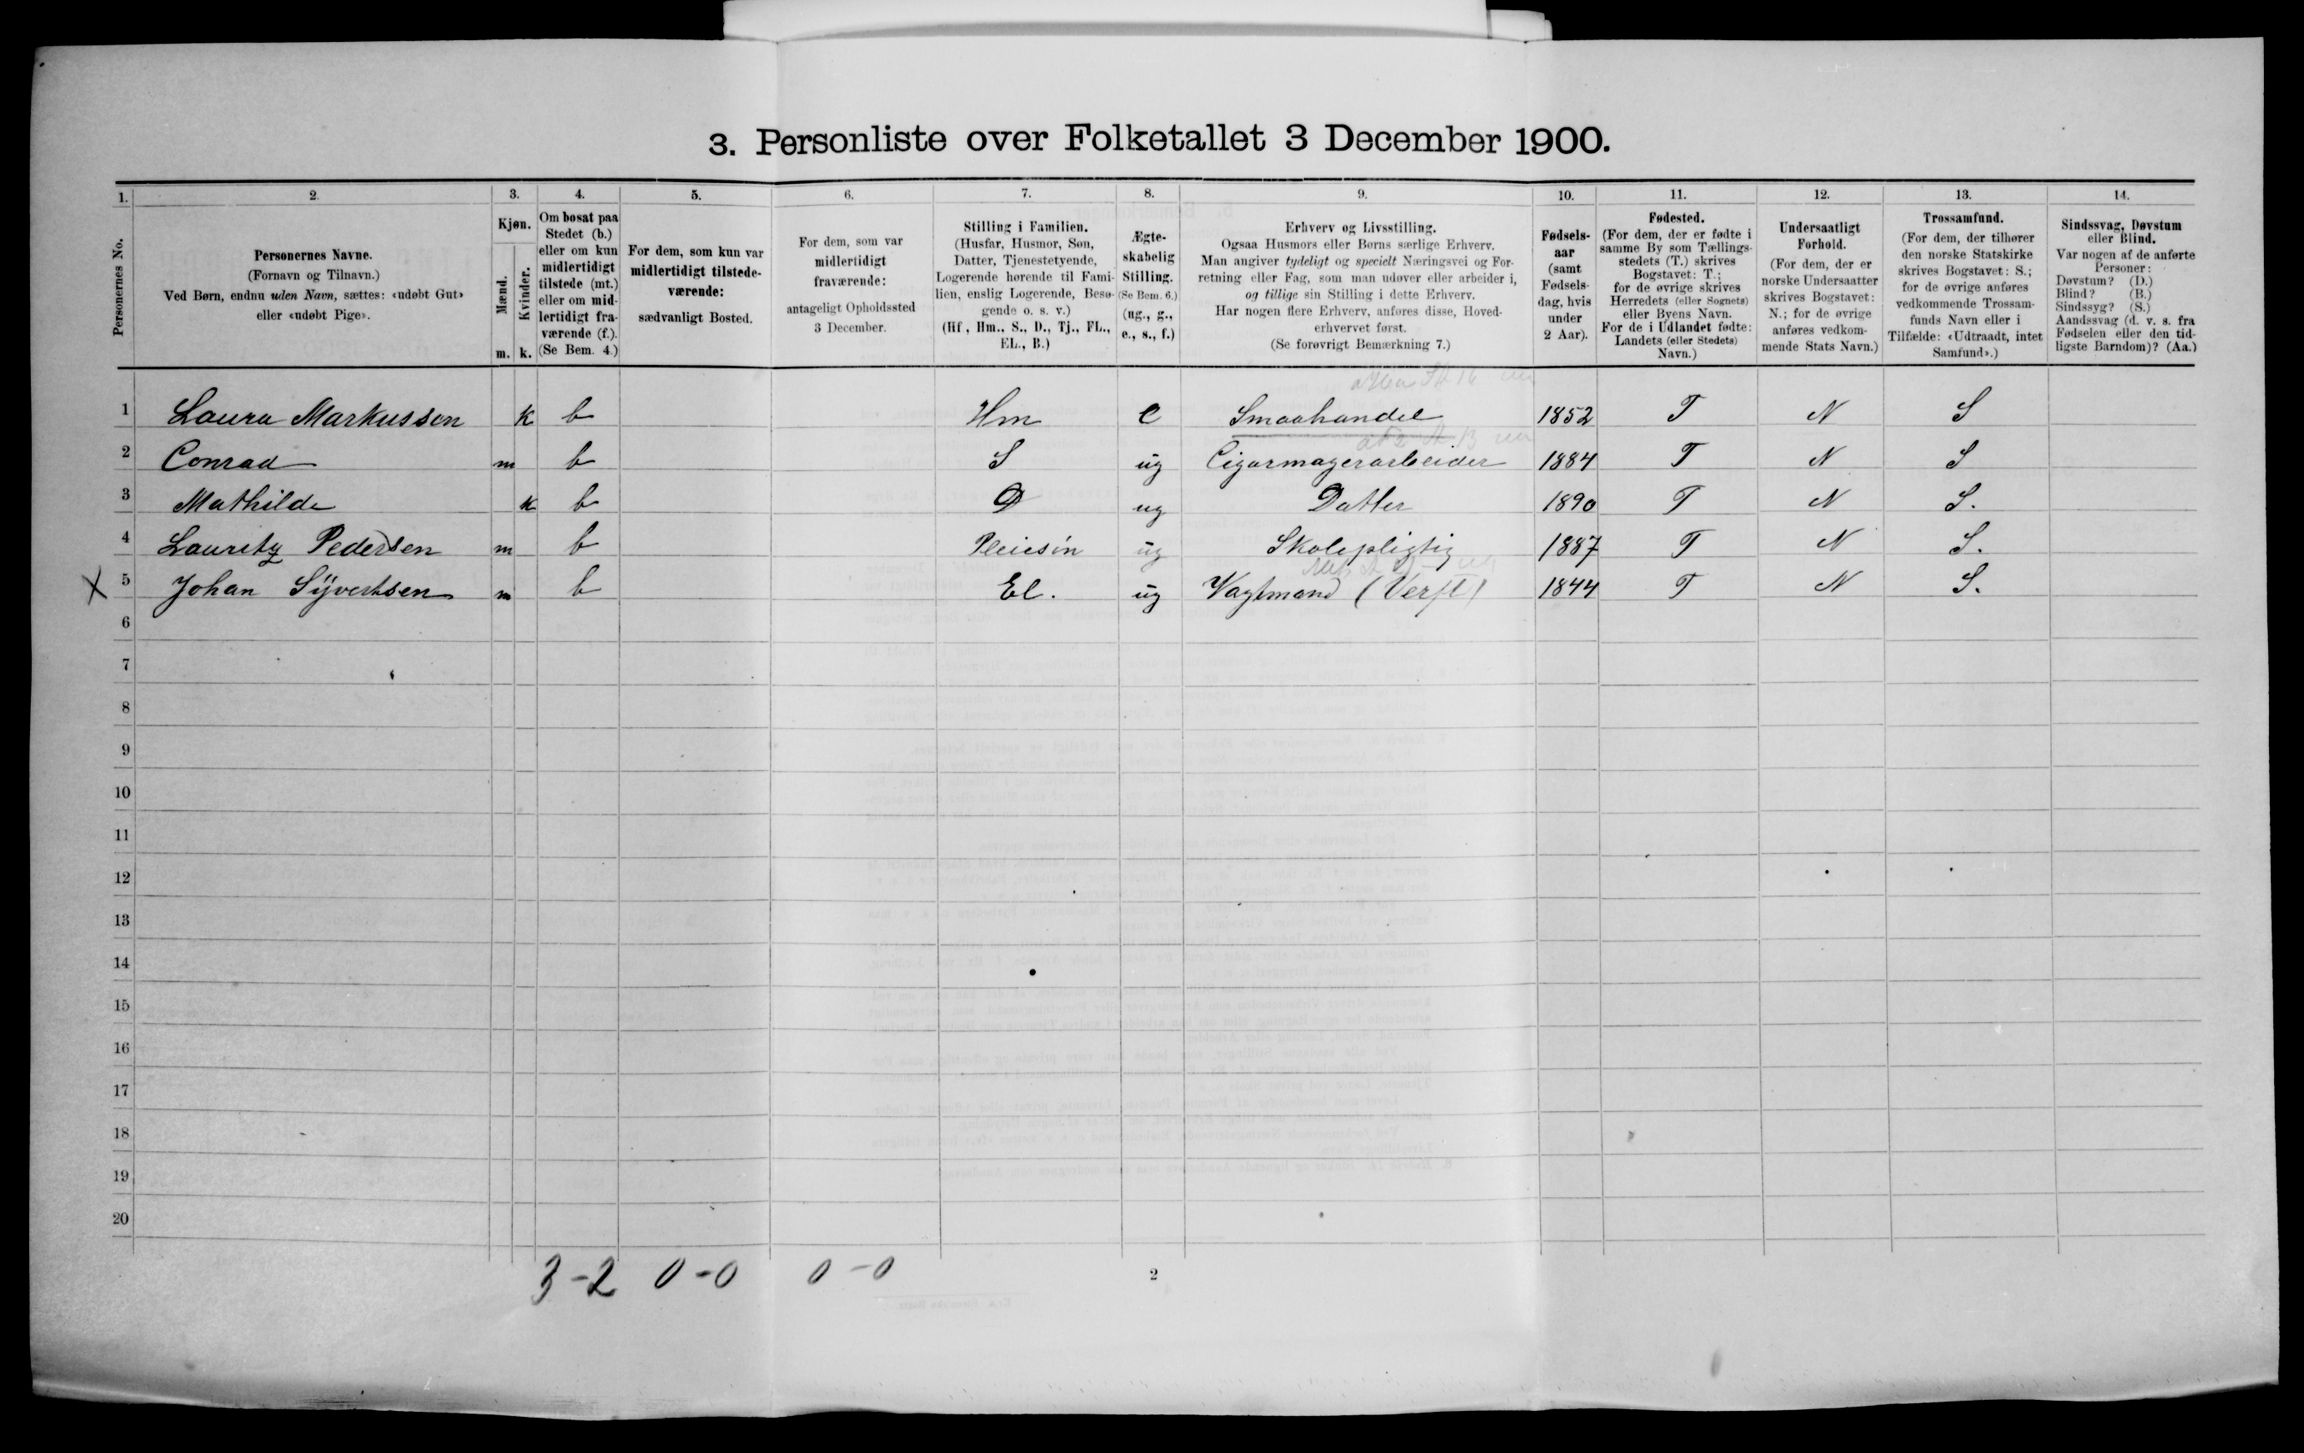 3. Personliste over Folketallet 3 December 1900.
1. 2. 3. 4. 5. 6. 7. 8. 9. 10. 11. 12. 13. 14.
Personernes No.
Personernes Navne.
(Fornavn og Tilnavn.)
Ved Børn, endnu uden Navn, sættes: «udøbt Gut»
eller «udøbt Pige».
Kjøn.
Mænd.
Kvinder.
m. k.
Om bosat paa
Stedet (b.)
eller om kun
midlertidigt
tilstede (mt.)
eller om mid-
lertidigt fra-
værende (f.).
(Se Bem. 4.)
For dem, som kun var
midlertidigt tilstede-
værende:
sædvanligt Bosted.
For dem, som var
midlertidigt
fraværende:
antageligt Opholdssted
3 December.
Stilling i Familien.
(Husfar, Husmor, Søn,
Datter, Tjenestetyende,
Logerende hørende til Fami-
lien, enslig Logerende, Besø-
gende o. s. v.)
(Hf., Hm., S., D., Tj., FL.,
EL., B.)
Ægte-
skabelig
Stilling.
(Se Bem. 6.)
(ug., g.,
e., s., f.)
Erhverv og Livsstilling.
Ogsaa Husmors eller Børns særlige Erhverv.
Man angiver tydeligt og specielt Næringsvei og For-
retning eller Fag, som man udøver eller arbeider i,
og tillige sin Stilling i dette Erhverv.
Har nogen flere Erhverv, anføres disse, Hoved-
erhvervet først.
(Se forøvrigt Bemærkning 7.)
Fødsels-
aar
(samt
Fødsels-
dag, hvis
under
2 Aar).
Fødested.
(For dem, der er fødte i
samme By som Tællings-
stedets (T.) skrives
Bogstavet: T.;
for de øvrige skrives
Herredets (eller Sognets)
eller Byens Navn.
For de i Udlandet fødte:
Landets (eller Stedets)
Navn.)
Undersaatligt
Forhold.
(For dem, der er
norske Undersaatter
skrives Bogstavet:
N.; for de øvrige
anføres vedkom-
mende Stats Navn.)
Trossamfund.
(For dem, der tilhører
den norske Statskirke
skrives Bogstavet: S.;
for de øvrige anføres
vedkommende Trossam-
funds Navn eller i
Tilfælde: «Udtraadt, intet
Samfund».)
Sindssvag, Døvstum
eller Blind.
Var nogen af de anførte
Personer:
Døvstum? (D.)
Blind? (B.)
Sindssyg? (S.)
Aandssvag (d. v. s. fra
Fødselen eller den tid-
ligste Barndom)? (Aa.)
1 Laura Markussen k b Hm e Smaahandel 1852 T N S
2 Conrad m b S ug Cigarmagerarbeider 1884 T N S
3 Mathilde k b D ug Datter 1890 T N S.
4 Lauritz Pedersen m b Pleiesøn ug Skolepligtig 1887 T N S.
X 5 Johan Syvertsen m b El. ug Vagtmand (Verft) 1844 T N S.
6
7
8
9
10
11
12
13
14
15
16
17
18
19
20
3-2 0-0 0-0
2